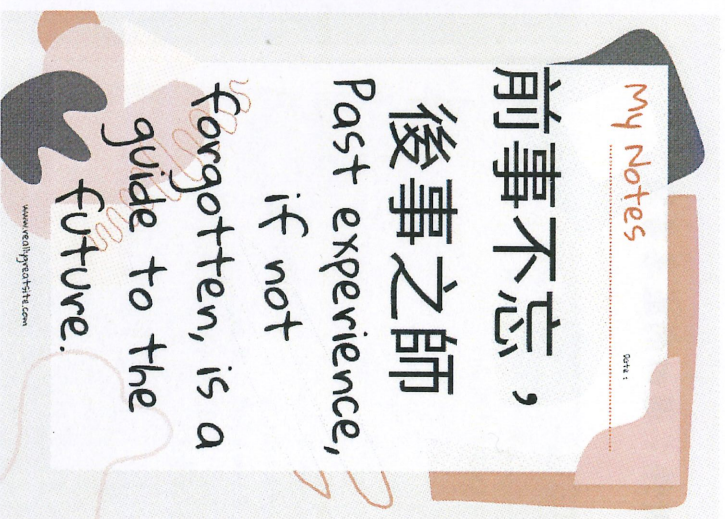 My Notes
Date :
前事不忘，
後事之師
Past experience,
if not
forgotten, is a
guide to the
future.
www.reallygreatsite.com